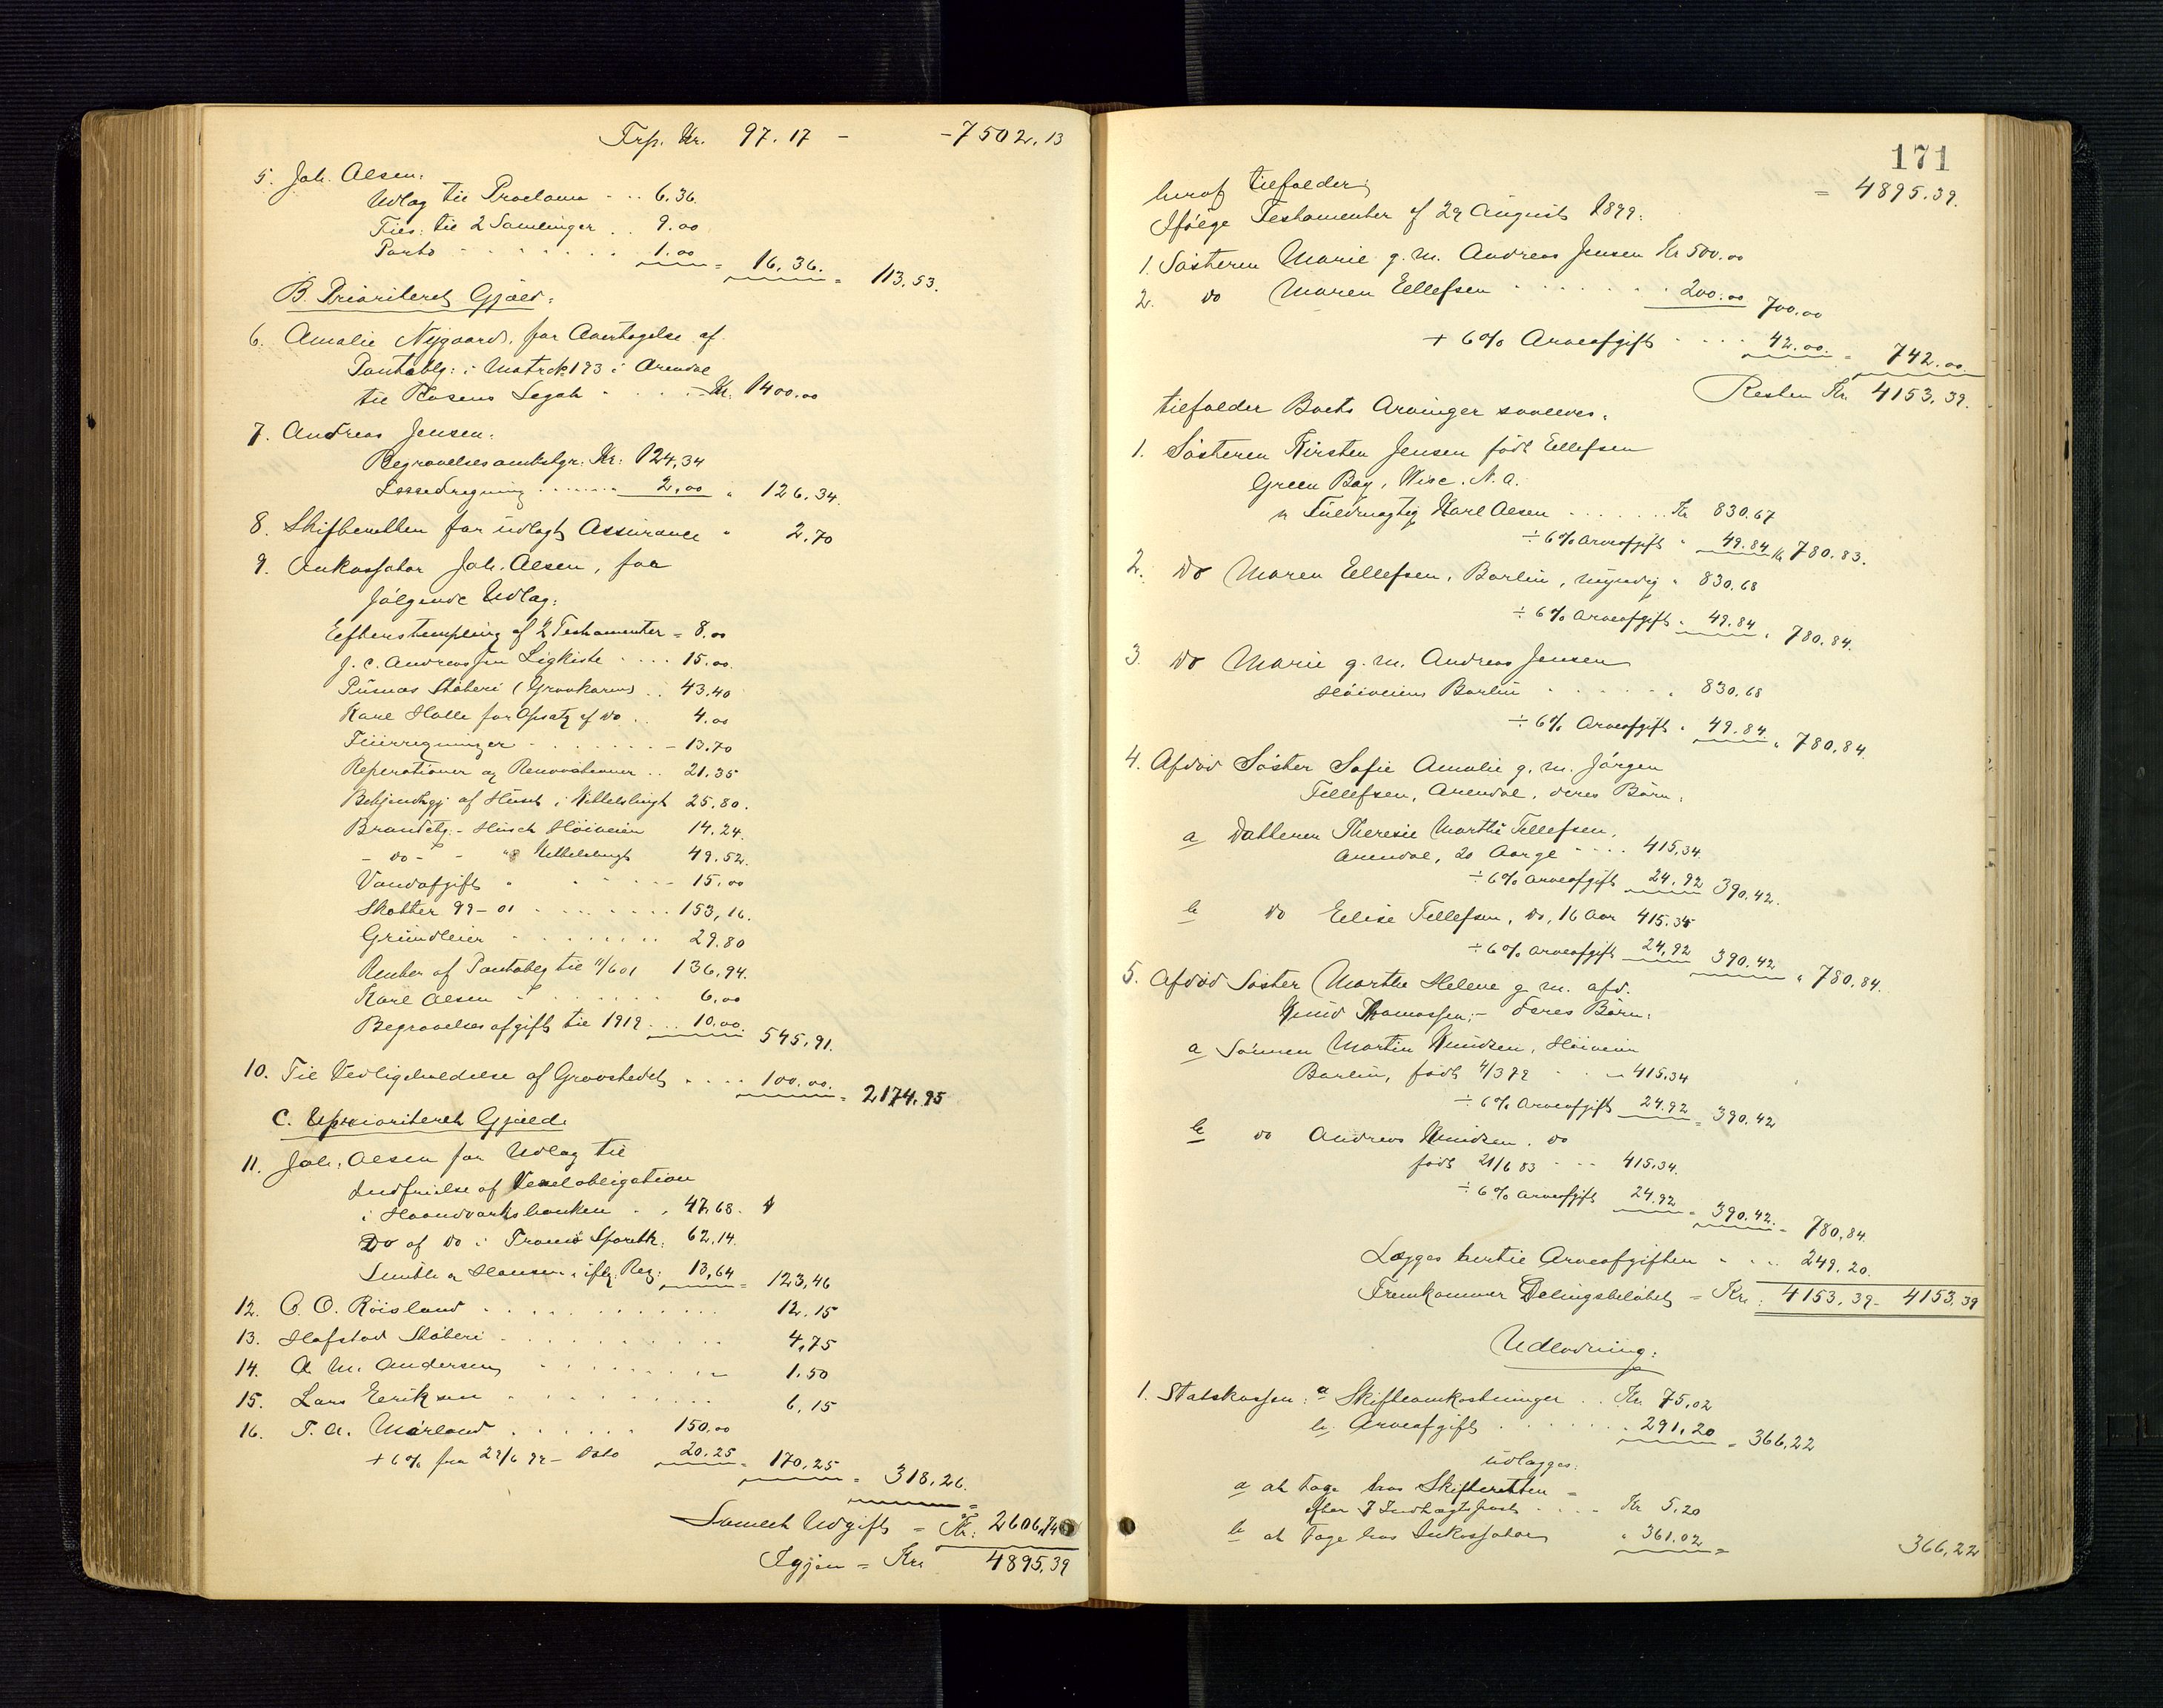 Trp. Kr. 97.17 - - 7502.13
5. Joh. Olsen:
Udlæg til Proclama - .. 6.36.
Ties: til 2 Samlinger .. 9.00
Porto - - - - - - 1.00 = 16.36. = 113.53.
B. Prioriteret Gjæld:
6. Amalie Nygaard, for Overtagelse af
Pantoblg: i Matr. No 193 i Arendal
til Rosens Legat - - - - Kr. 1400.00
7. Andreas Jensen:
Begravelsesomkstgr. Kr: 124,34
Lossedregning ....... 2,00 " 126.34.
8. Skifteretten for udlagt Assurance " 2.70
9. Inkassator Joh. Olsen, for
følgende Udlæg:
Efterstempling af 2 Testamenter = 8.00
J. C. Andreassen Ligkiste .... 15.00.
Pusnæs Støberi (Gravkarm) .. 43.40
Karl Halle for Opsatz af do .. 4.00
Fliirregninger - - - - - - 13.70
Reperationer og Renovationer .. 21.35
Bekjendtgj af Huset i Kittelsbugt 25.80.
Brandctg. - Huset Høiveien 14.24.
- do - - " Kittelsbugt 49.52.
Vandafgift " - - - - 15.00
Skatter 99-01 ........ 153,16.
Grundleier - - - - - 29.80
Renter af Pantoblg til 11/6 01 136,94.
Karl Olsen - - - - - 6.00
Begravelsesafgift til 1919 ... 10.00. 545,91.
10. Til Vedligeholdelse af Gravstedet .... 100.00. = 2174.95
C. Uprioriteret Gjæld.
11. Joh. Olsen for Udlæg til
Indfrielse af Vexelobligation
i Haandværksbanken . . 47,68.
Do af do i Tromø Sparebk. 62,14.
Smith & Hansen, iflg. Reg. 13,64 = 123,46
12. O. O. Röisland . . . . . . . 12.15
13. Hafstad Støberi . . . . . . . 4,75
14. A. M. Andersen . . . . . . . 1.50
15. Lars Eriksen . . . . . . . 6,15
16. T. A. Mørland . . . . . . 150.00
+ 6% fra 29/6 99 - Dato 20.25 = 170,25 = 318,26.
Samlet Udgift = Kr. 2606,74
Igjen = Kr. 4895,39
171
heraf tilfalder; = 4895.39.
Ifølge Testamenter af 29 August 1899:
1. Søsteren Marie g. m. Andreas Jensen Kr 500.00
2. do Maren Ellefsen - - - - - 200.00 700.00
+ 6% Arveafgift - - - - 42.00. = 742.00.
Resten Kr. 4153,39.
tilfalder Boets Arvinger saaledes:
1. Søsteren Kirsten Jensen født Ellefsen
Green Bay, Wisc. N. A.
v Fuldmægtig Karl Olsen ...... Kr 830.67
÷ 6% Arveafgift " 49.84 Kr 780.83.
2. do Maren Ellefsen, Barbu, myndig " 830,68
÷ 6% Arveafgift " 49.84 " 780.84.
3. do Marie g. m. Andreas Jensen
Høiveien Barbu - - - - - " 830.68
÷ 6% Arveafgift " 49.84. " 780,84.
4. Afdød Søster Sofie Amalie g. m. Jørgen
Tellefsen, Arendal, deres Børn:
a Datteren Theresie Marthe Tellefsen,
Arendal, 20 Aar gl - - - . 415,34.
÷ 6% Arveafgift 24,92 390,42.
b do Elise Tellefsen, do, 16 Aar 415.35
÷ 6% Arveafgift 24,92 390.42 " 780,84.
5. Afdød Søster Marthe Helene g. m. afd.
Knud Thomassen; - deres Børn:
a Sønnen Martin Knudsen, Høiveien
Barbu, født 4/3 79 - - - 415,34
÷ 6% Arveafgift 24.92 = 390.42
b do Andreas Knudsen, do
født 21/6 83 - - - 415.34.
÷ 6% Arveafgift 24.92 = 390.42. = 780,84.
Lægges hertil Arveafgiften - - .. 249.20.
Fremkommer Delingsbeløbet = Kr. 4153,39 - 4153,39
Udlodning:
1. Statskassen: a Skifteomkostninger .. Kr. 75,02
b. Arveafgift - - - - - - 291,20 = 366,22
udlægges:
a at tage hos Skifteretten =
efter 7 Indtægtspost - - - - Kr 5,20
b at tage hos Inkassator " 361.02 = 366,22